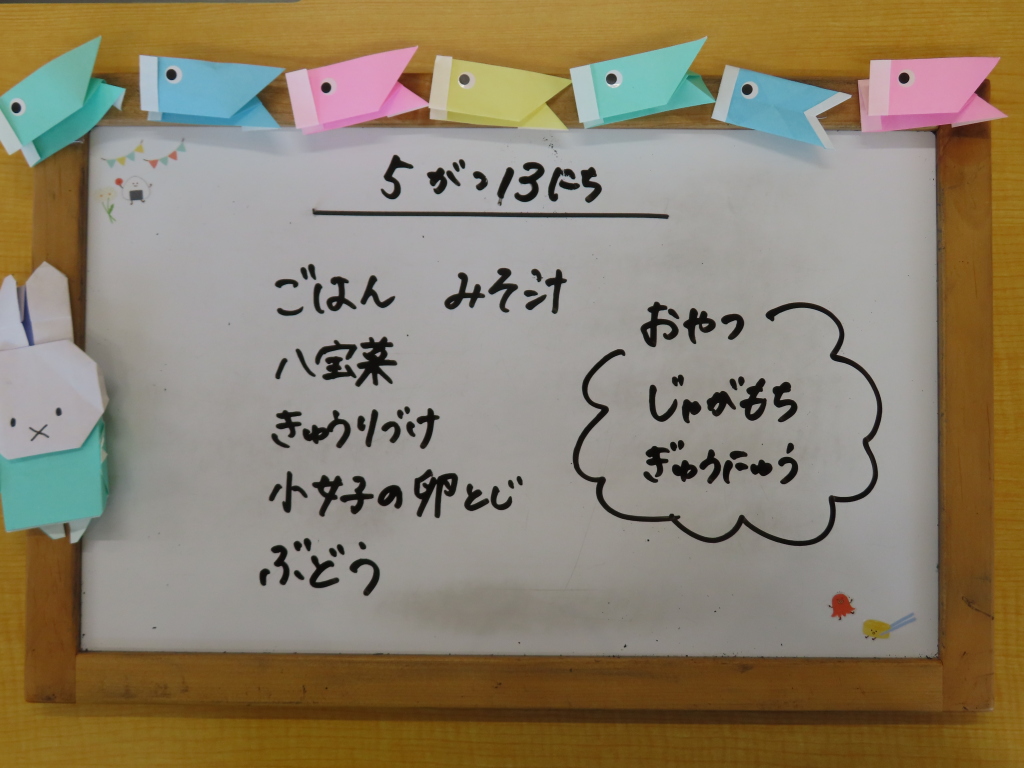 5がつ13にち
ごはん　みそ汁
八宝菜
きゅうりづけ
小女子の卵とじ
ぶどう
おやつ
じゃがもち
ぎゅうにゅう